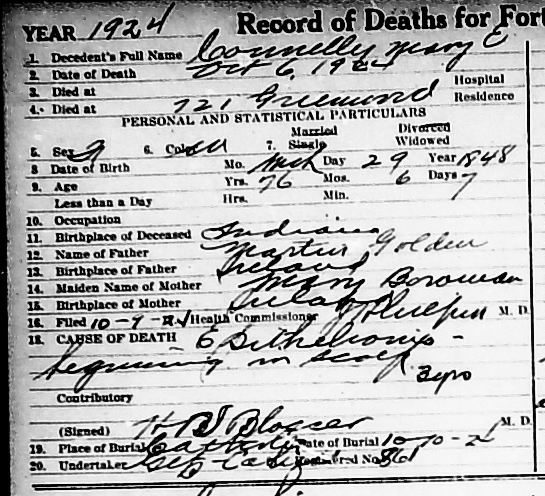 YEAR 1924 Record of Deaths for Fort
1. Decedent's Full Name Connelly Mary E
2. Date of Death Oct 6, 1924
3. Died at Hospital
4. Died at 721 Greenwood Residence
PERSONAL AND STATISTICAL PARTICULARS
Married Divorced
5. Sex F 6. Color W 7. Single Widowed
8 Date of Birth Mo. Mch Day 29 Year 1848
9. Age Yrs. 76 Mos. 6 Days 7
Less than a Day Hrs. Min.
10. Occupation
11. Birthplace of Deceased Indiana
12. Name of Father Martin Golden
13. Birthplace of Father Ireland
14. Maiden Name of Mother Mary Borowman
15. Birthplace of Mother Ireland
16. Filed 10-9-24 Health Commissioner M. D.
18. CAUSE OF DEATH Epithelioma -
beginning in scalp
3 yrs
Contributory
(Signed) H B Blosser M. D.
19. Place of Burial Catholic Date of Burial 10-10-24
20. Undertaker Registered No. 861